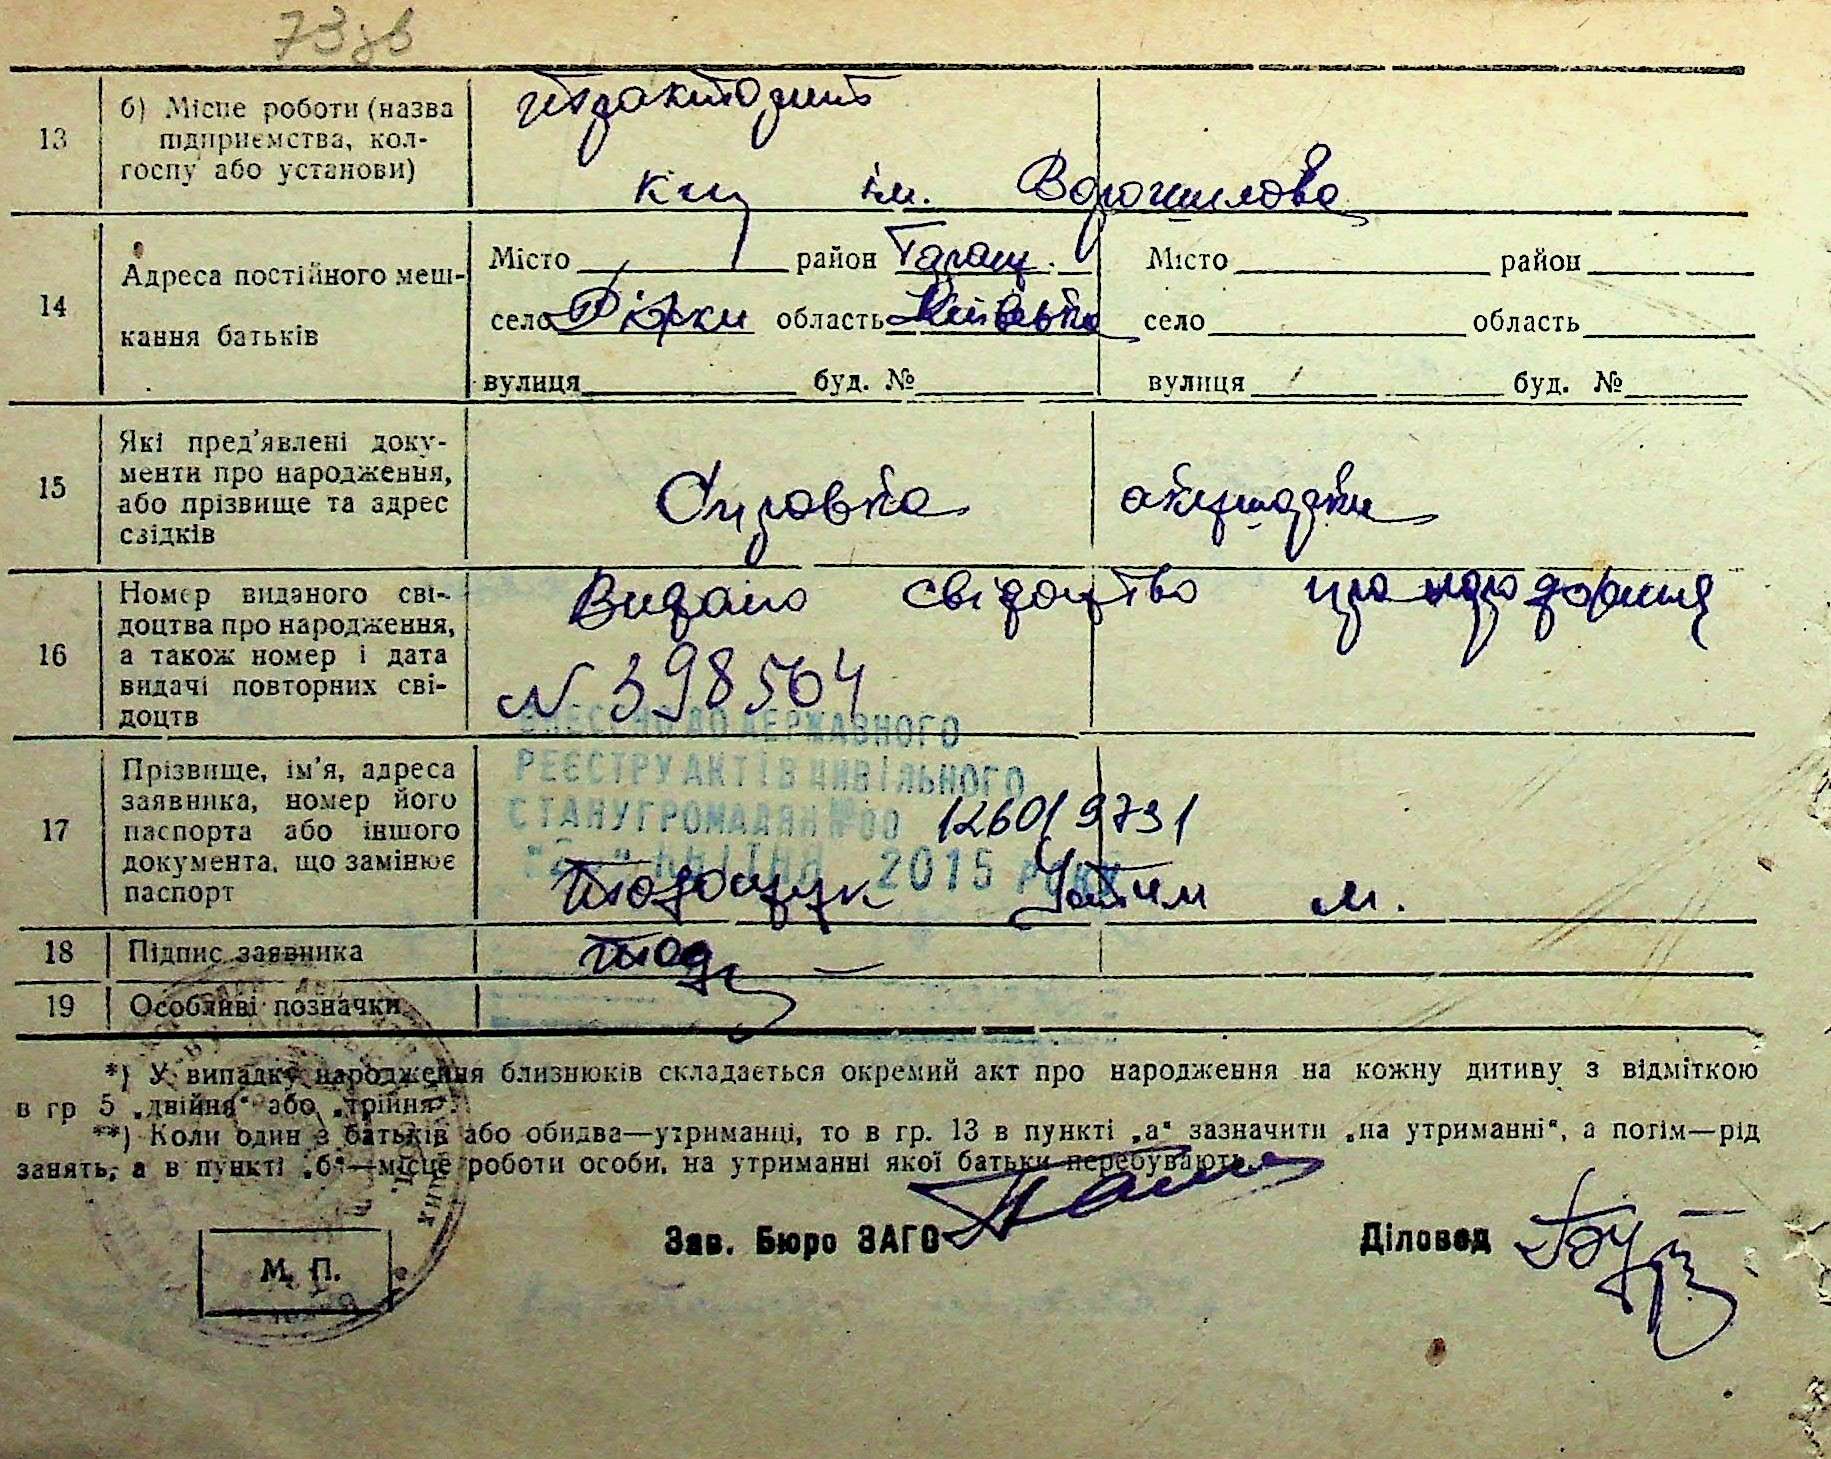 73зв
13 б) Місце роботи (назва підприємства, колгоспу або установи)
тракторист
кгу ім. Ворошилова
14 Адреса постійного мешкання батьків
Місто район Таращ. Місто район
село Ріжки область Київська село область
вулиця буд. № вулиця буд. №
15 Які пред'явлені документи про народження, або прізвище та адрес свідків
Справка акушерки
16 Номер виданого свідоцтва про народження, а також номер і дата видачі повторних свідоцтв
Видано свідоцтво про народження
№ 398564
ВНЕСЕНО ДО ДЕРЖАВНОГО
РЕЄСТРУ АКТІВ ЦИВІЛЬНОГО
СТАНУ ГРОМАДЯН №00 126019731
КВІТНЯ 2015 РОКУ
17 Прізвище, ім'я, адреса заявника, номер його паспорта або іншого документа, що замінює паспорт
М.
18 Підпис заявника
19 Особливі позначки
*) У випадку народження близнюків складається окремий акт про народження на кожну дитину з відміткою
в гр 5 „двійня“ або „трійня“.
**) Коли один з батьків або обидва—утриманці, то в гр. 13 в пункті „а“ зазначити „на утриманні“, а потім—рід
занять, а в пункті „б“—місце роботи особи, на утриманні якої батьки перебувають.
Зав. Бюро ЗАГС Діловод
М. П.